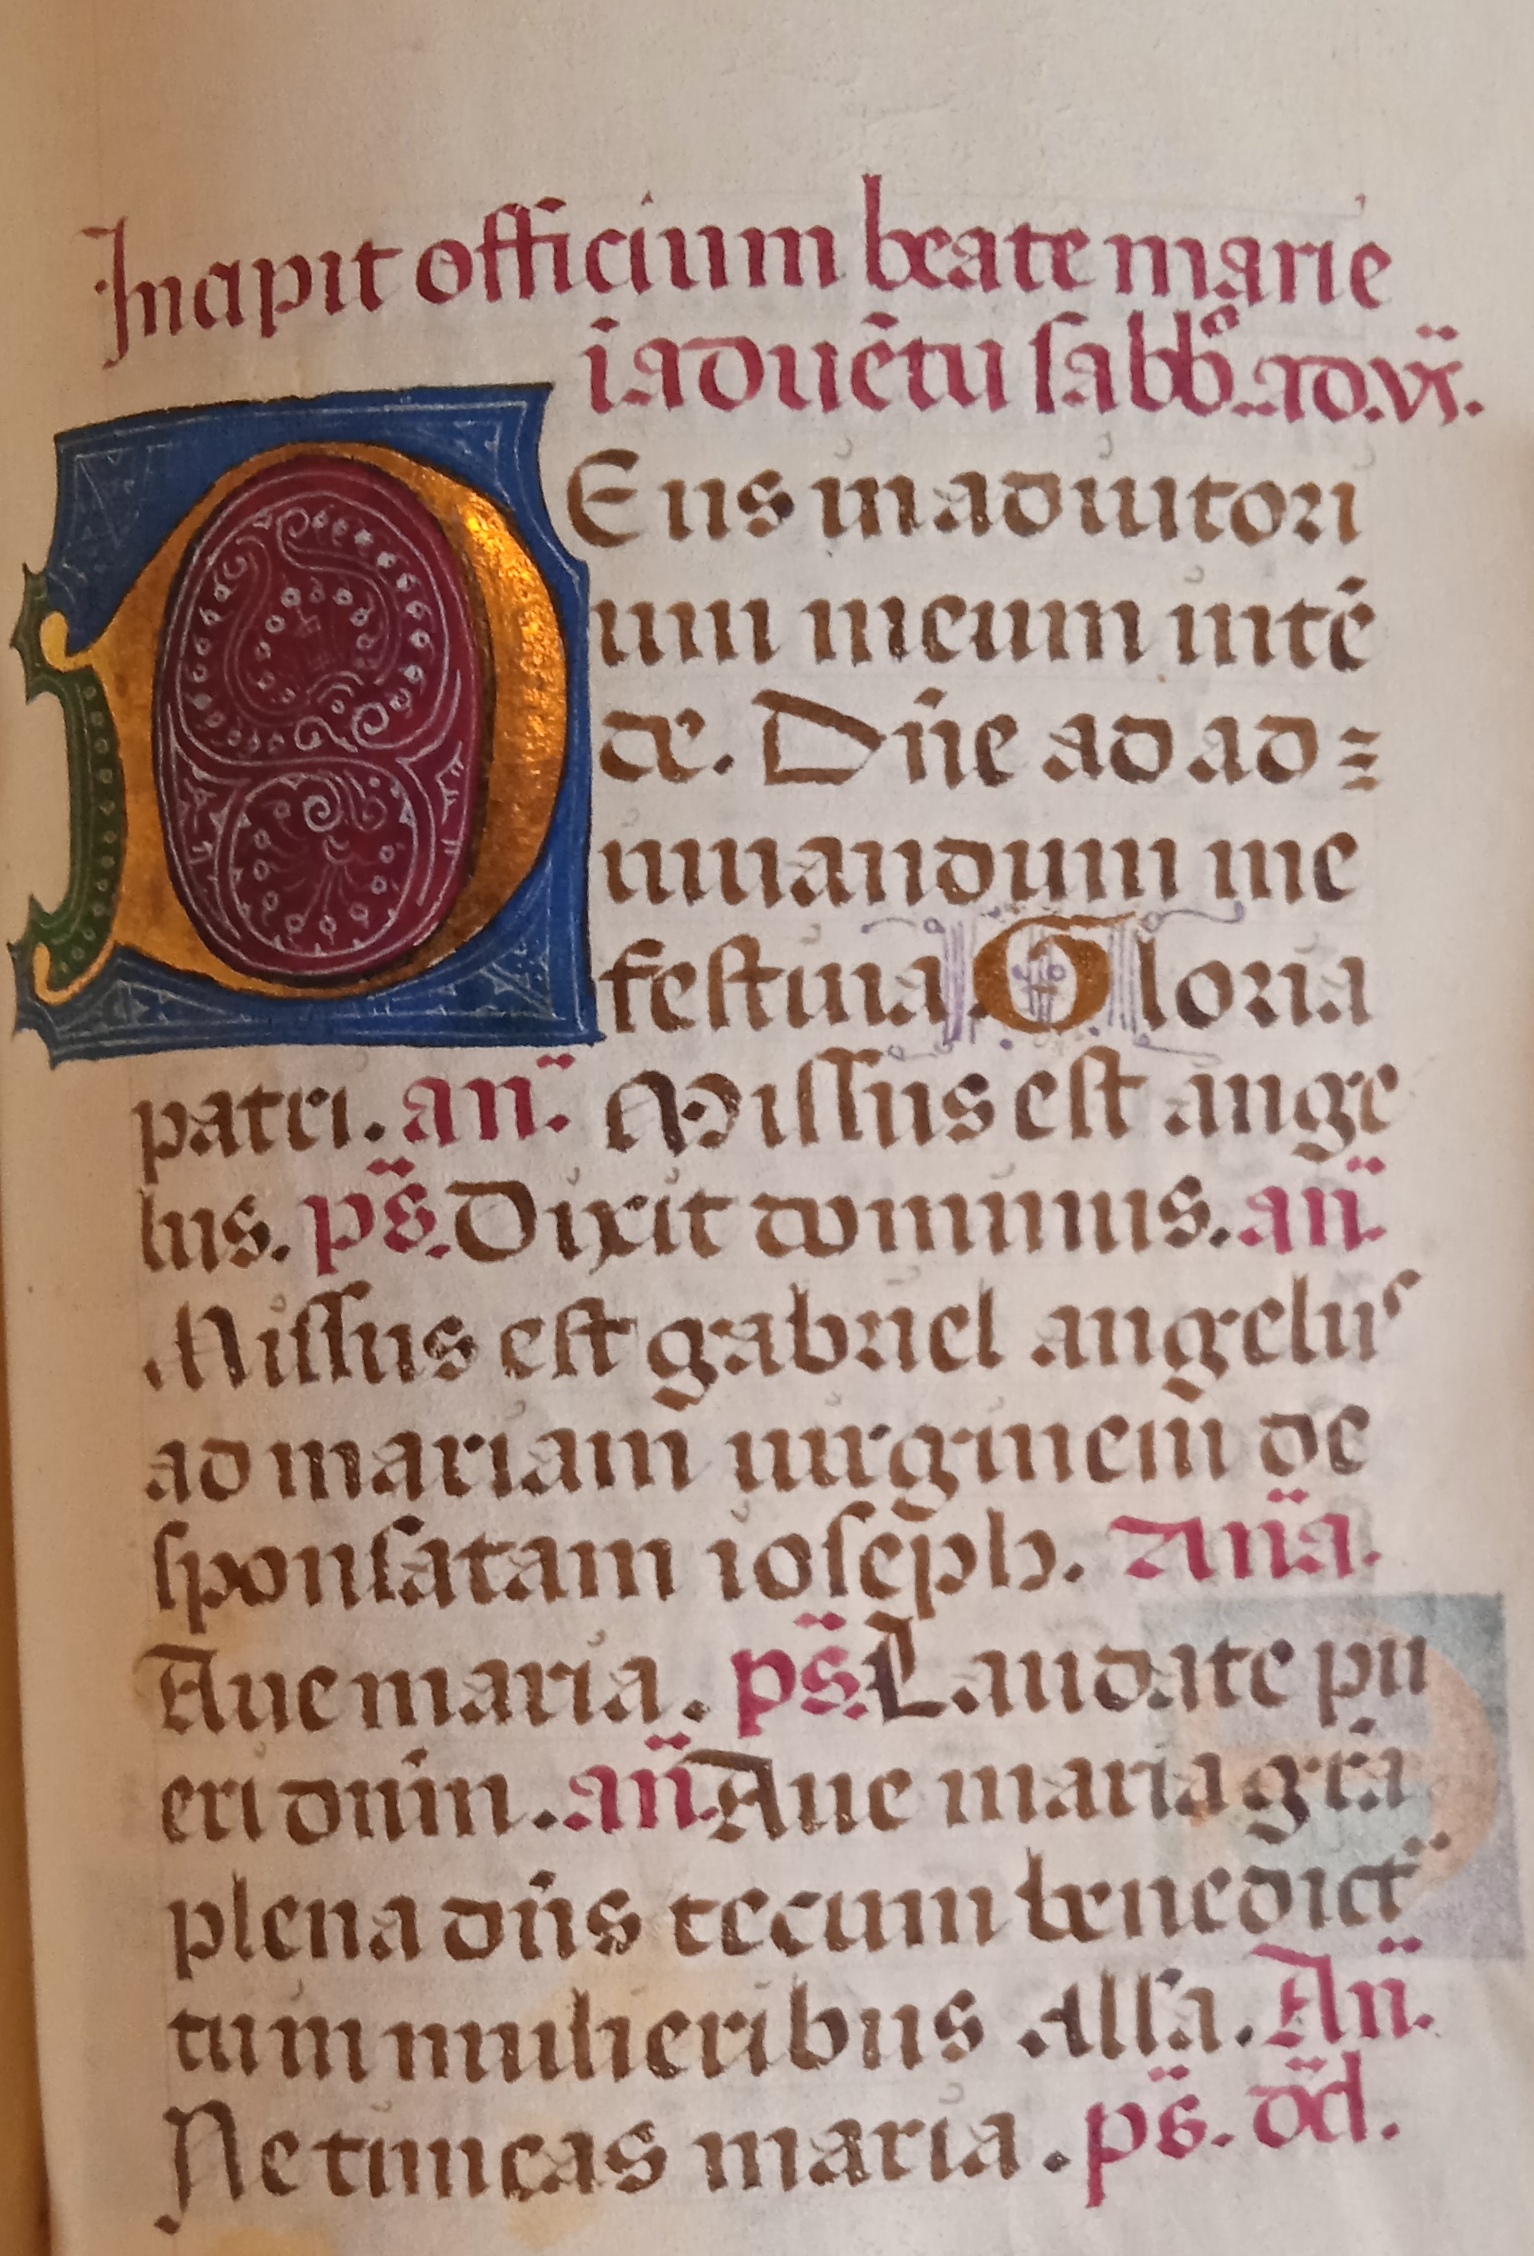 Incipit officium beate marie
ī aduētu sabbo. ad. vṝ.
DEus in adiutori
um meum intē
de. Dn̄e ad ad=
iuuandum me
festina. Gloria
patri. an̄. Missus est ange
lus. ps̄. Dixit dominus. an̄.
Missus est gabriel angelus
ad mariam uirginem de
sponsatam ioseph. An̄a.
Aue maria. ps̄. Laudate pu
eri dnm̄. an̄. Aue maria grā
plena dn̄s tecum benedict̄
tu in mulieribus Alla. An̄.
Ne timeas maria. ps̄. dd̄.